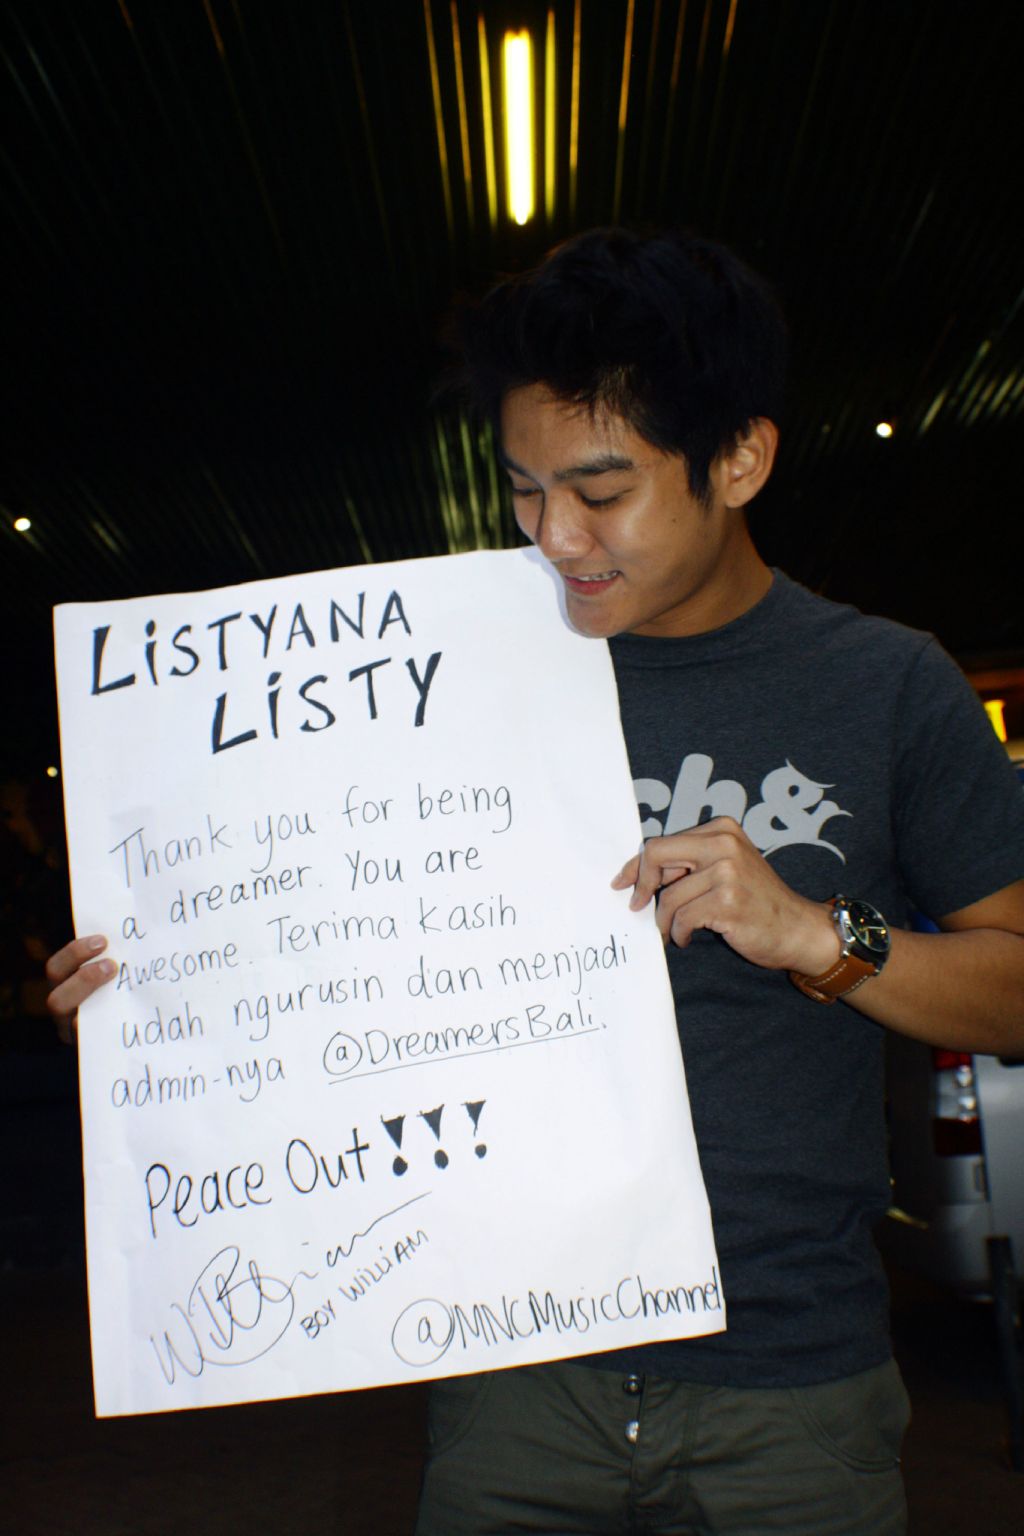 LiSTYANA
LiSTY
Thank you for being
a dreamer. You are
Awesome. Terima kasih
udah ngurusin dan menjadi
admin-nya @DreamersBali.
Peace Out!!!
BOY WILLIAM
@MNCMusicChannel
ch&